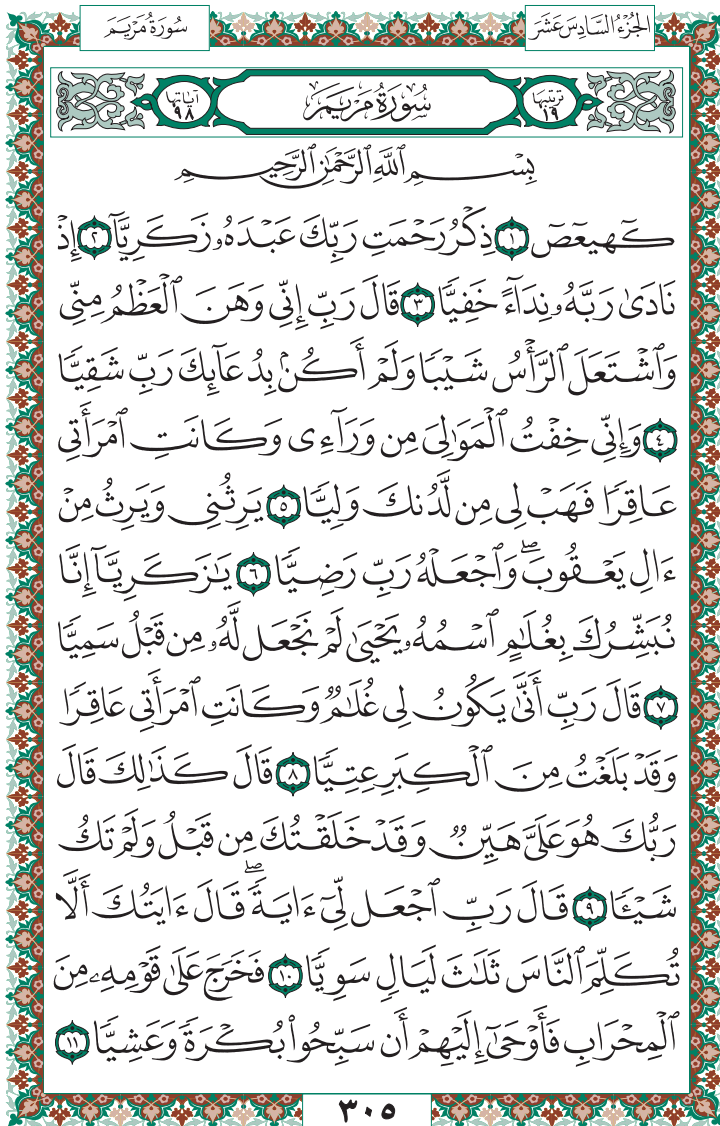 الجُزْءُ السَّادِسَ عَشَرَ
سُورَةُ مَرْيَمَ
ترتيبها ١٩
سُورَةُ مَرْيَمَ
آياتها ٩٨
بِسْمِ ٱللَّهِ ٱلرَّحْمَٰنِ ٱلرَّحِيمِ
كٓهيعٓصٓ ١ ذِكْرُ رَحْمَتِ رَبِّكَ عَبْدَهُۥ زَكَرِيَّآ ٢ إِذْ
نَادَىٰ رَبَّهُۥ نِدَآءً خَفِيًّا ٣ قَالَ رَبِّ إِنِّى وَهَنَ ٱلْعَظْمُ مِنِّى
وَٱشْتَعَلَ ٱلرَّأْسُ شَيْبًا وَلَمْ أَكُنۢ بِدُعَآئِكَ رَبِّ شَقِيًّا
٤ وَإِنِّى خِفْتُ ٱلْمَوَٰلِىَ مِن وَرَآءِى وَكَانَتِ ٱمْرَأَتِى
عَاقِرًا فَهَبْ لِى مِن لَّدُنكَ وَلِيًّا ٥ يَرِثُنِى وَيَرِثُ مِنْ
ءَالِ يَعْقُوبَۖ وَٱجْعَلْهُ رَبِّ رَضِيًّا ٦ يَٰزَكَرِيَّآ إِنَّا
نُبَشِّرُكَ بِغُلَٰمٍ ٱسْمُهُۥ يَحْيَىٰ لَمْ نَجْعَل لَّهُۥ مِن قَبْلُ سَمِيًّا
٧ قَالَ رَبِّ أَنَّىٰ يَكُونُ لِى غُلَٰمٌ وَكَانَتِ ٱمْرَأَتِى عَاقِرًا
وَقَدْ بَلَغْتُ مِنَ ٱلْكِبَرِ عِتِيًّا ٨ قَالَ كَذَٰلِكَ قَالَ
رَبُّكَ هُوَ عَلَىَّ هَيِّنٌ وَقَدْ خَلَقْتُكَ مِن قَبْلُ وَلَمْ تَكُ
شَيْـًٔا ٩ قَالَ رَبِّ ٱجْعَل لِّىٓ ءَايَةًۖ قَالَ ءَايَتُكَ أَلَّا
تُكَلِّمَ ٱلنَّاسَ ثَلَٰثَ لَيَالٍ سَوِيًّا ١٠ فَخَرَجَ عَلَىٰ قَوْمِهِۦ مِنَ
ٱلْمِحْرَابِ فَأَوْحَىٰٓ إِلَيْهِمْ أَن سَبِّحُوا۟ بُكْرَةً وَعَشِيًّا ١١
٣٠٥